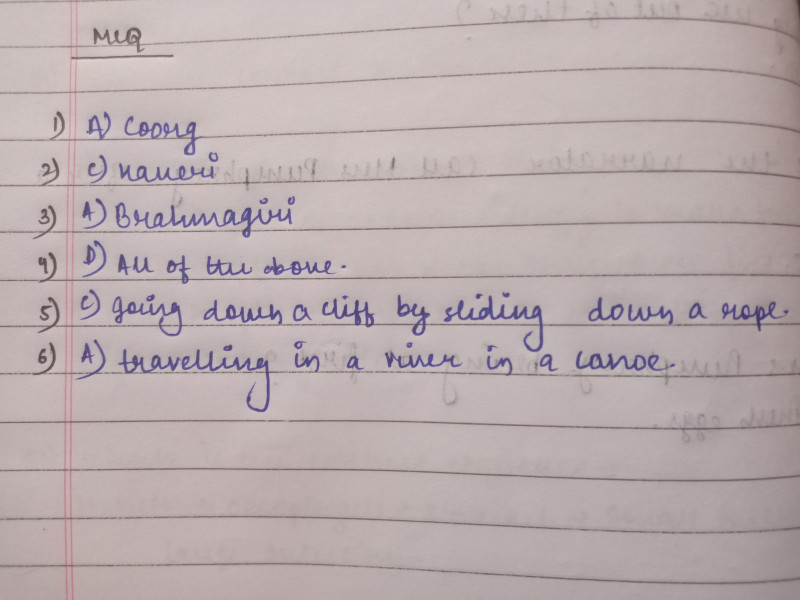 MCQ
1) A) Coorg
2) C) Kaveri
3) A) Brahmagiri
4) D) All of the above.
5) C) going down a cliff by sliding down a rope.
6) A) travelling in a river in a canoe.